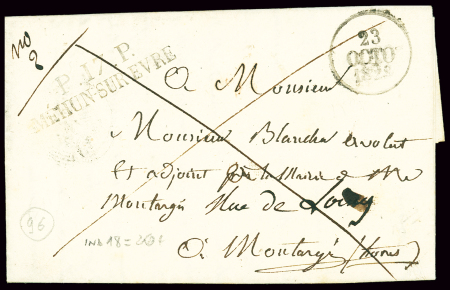 no
2
P. 17. P.
MEHUN-SUR-EVRE
23
OCTO
A Monsieur
Monsieur Blanche avocat
Et adjoint de la Mairie de
Montargis Rue de Loing
A Montargis
96
IND 18 =